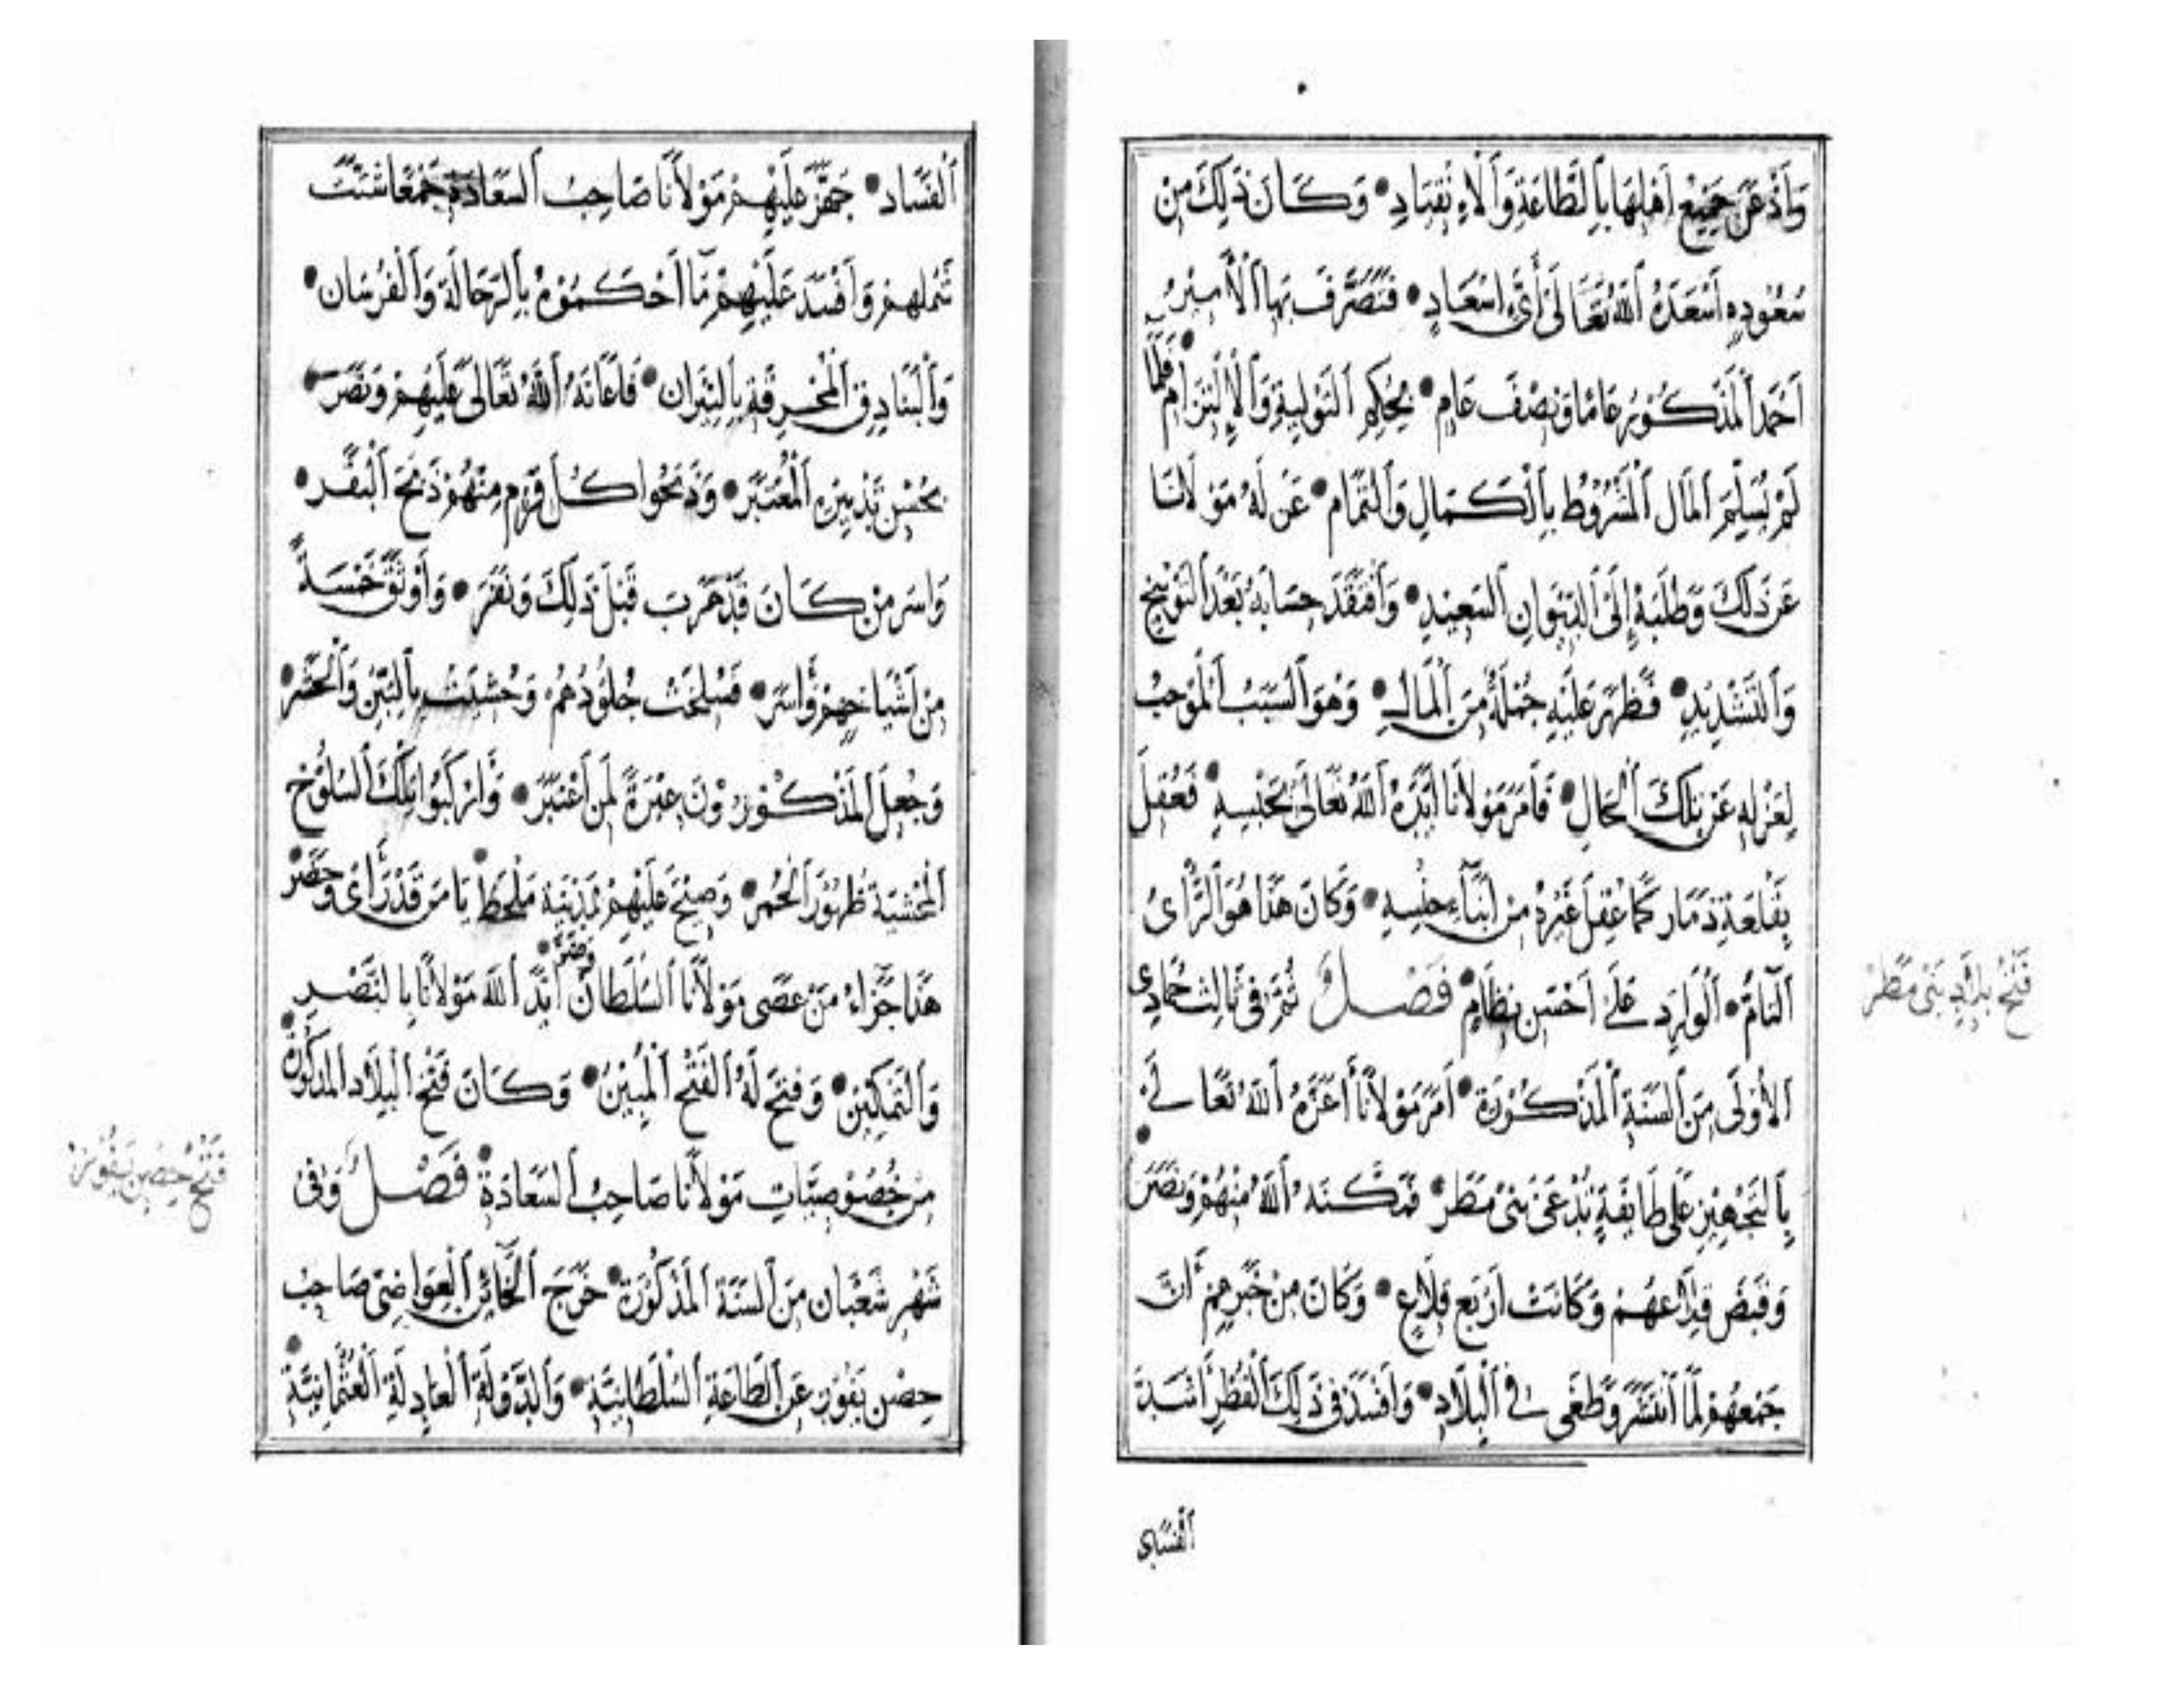 وَأَذْعَنَ جَمِيعُ أَهْلِهَا بِالطَّاعَةِ وَالْاِنْقِيَادِ • وَكَانَ ذَلِكَ مِنْ
سُعُودِهِ أَسْعَدَهُ اللهُ تَعَالَى أَىَّ اِسْعَادٍ • فَتَصَرَّفَ بِهَا الْأَمِيرُ
أَحْمَدُ الْمَذْكُورُ عَامًا وَنِصْفَ عَامٍ • بِحُكْمِ التَّوْلِيَةِ وَالْاِلْتِزَامِ • فَلَمَّا
لَمْ يُسَلِّمِ الْمَالَ الْمَشْرُوطَ بِالْكَمَالِ وَالتَّمَامِ • عَزَلَهُ مَوْلَانَا
عَنْ ذَلِكَ وَطَلَبَهُ إِلَى الدِّيوَانِ السَّعِيدِ • وَافْتَقَدَ حِسَابَهُ بَعْدَ التَّوْبِيخِ
وَالتَّشْدِيدِ • فَظَهَرَ عَلَيْهِ جُمْلَةٌ مِنَ الْمَالِ • وَهُوَ السَّبَبُ الْمُوجِبُ
لِعَزْلِهِ عَنْ تِلْكَ الْحَالِ • فَأَمَرَ مَوْلَانَا أَيَّدَهُ اللهُ تَعَالَى بِحَبْسِهِ • فَعُقِلَ
بِقَلْعَةِ ذَمَار كَمَا عُقِلَ غَيْرُهُ مِنْ أَبْنَاءِ جِنْسِهِ • وَكَانَ هَذَا هُوَ الرَّأْىُ
التَّامُّ • الْوَارِدِ عَلَى أَحْسَنِ نِظَامٍ • فَصْلٌ ثُمَّ فِى ثَالِثِ جُمَادِى
الْأُولَى مِنَ السَّنَةِ الْمَذْكُورَةِ • أَمَرَ مَوْلَانَا أَعَزَّهُ اللهُ تَعَالَى
بِالتَّجْهِيزِ عَلَى طَايِفَةٍ تُدْعَى بَنِى مَطَر • فَمَكَّنَهُ اللهُ مِنْهُمْ وَنَصَرَ •
وَقَبَضَ قِلَاعَهُمْ وَكَانَتْ أَرْبَعَ قِلَاعٍ • وَكَانَ مِنْ خَبَرِهِمْ أَنَّ
جَمْعَهُمْ لَمَّا انْتَشَرَ وَطَغَى فِى الْبِلَادِ • وَأَفْسَدَ فِى ذَلِكَ الْقُطْرِ أَشَدَّ
الفساد
فَتْحُ بِلَادِ بَنِى مَطَرْ
الْفَسَادِ • جَهَّزَ عَلَيْهِمْ مَوْلَانَا صَاحِبُ السَّعَادَةِ جَمْعًا شَتَّتَ
شَمْلَهُمْ وَأَفْسَدَ عَلَيْهِمْ مَا أَحْكَمُوهُ بِالرَّجَّالَةِ وَالْفُرْسَانِ •
وَالْبَنَادِقِ الْمُحْرِقَةِ بِالنِّيرَانِ • فَأَعَانَهُ اللهُ تَعَالَى عَلَيْهِمْ وَنَصَرَ •
بِحُسْنِ تَدْبِيرِهِ الْمُعْتَبَرِ • وَذَبَحُوا كُلَّ قَرْمٍ مِنْهُمْ ذَبْحَ الْبَقَرِ •
وَأُسِرَ مَنْ كَانَ قَدْ هَرَبَ قَبْلَ ذَلِكَ وَنَفَرَ • وَأَوْثَقَ خَمْسَةً
مِنْ أَشْيَاخِهِمْ وَأَسَرَ • فَسُلِخَتْ جُلُودُهُمْ وَحُشِيَتْ بِالتِّبْنِ وَالْحَشَرِ •
وَجُعِلَ الْمَذْكُورُونَ عِبْرَةً لِمَنِ اعْتَبَرَ • وَأُرْكِبُوا تِلْكَ السُّلُوخُ
الْمَحْشِيَّةُ ظُهُورَ الْحُمُرِ • وَصِيحَ عَلَيْهِمْ بِمَدِينَةِ مَلْحَظ • يَا مَنْ قَدْ رَأَى وَحَضَرَ •
هَذَا جَزَاءُ مَنْ عَصَى مَوْلَانَا السُّلْطَانَ • أَيَّدَ اللهُ مَوْلَانَا بِالنَّصْرِ
وَالتَّمْكِينِ • وَفَتَحَ لَهُ الْفَتْحَ الْمُبِينَ • وَكَانَ فَتْحُ الْبِلَادِ الْمَذْكُورَةِ •
مِنْ خُصُوصِيَّاتِ مَوْلَانَا صَاحِبُ السَّعَادَةِ • فَصْلٌ وَفِى
شَهْرِ شَعْبَانَ مِنَ السَّنَةِ الْمَذْكُورَةِ • خَرَجَ الْخَائِنُ الْعَوَاضِى صَاحِبُ
حِصْنِ يَفُوزَ عَنِ الطَّاعَةِ السُّلْطَانِيَّةِ • وَالدَّوْلَةِ الْعَادِلَةِ الْعُثْمَانِيَّةِ •
فَتْحُ حِصْنِ يَفُوزَ